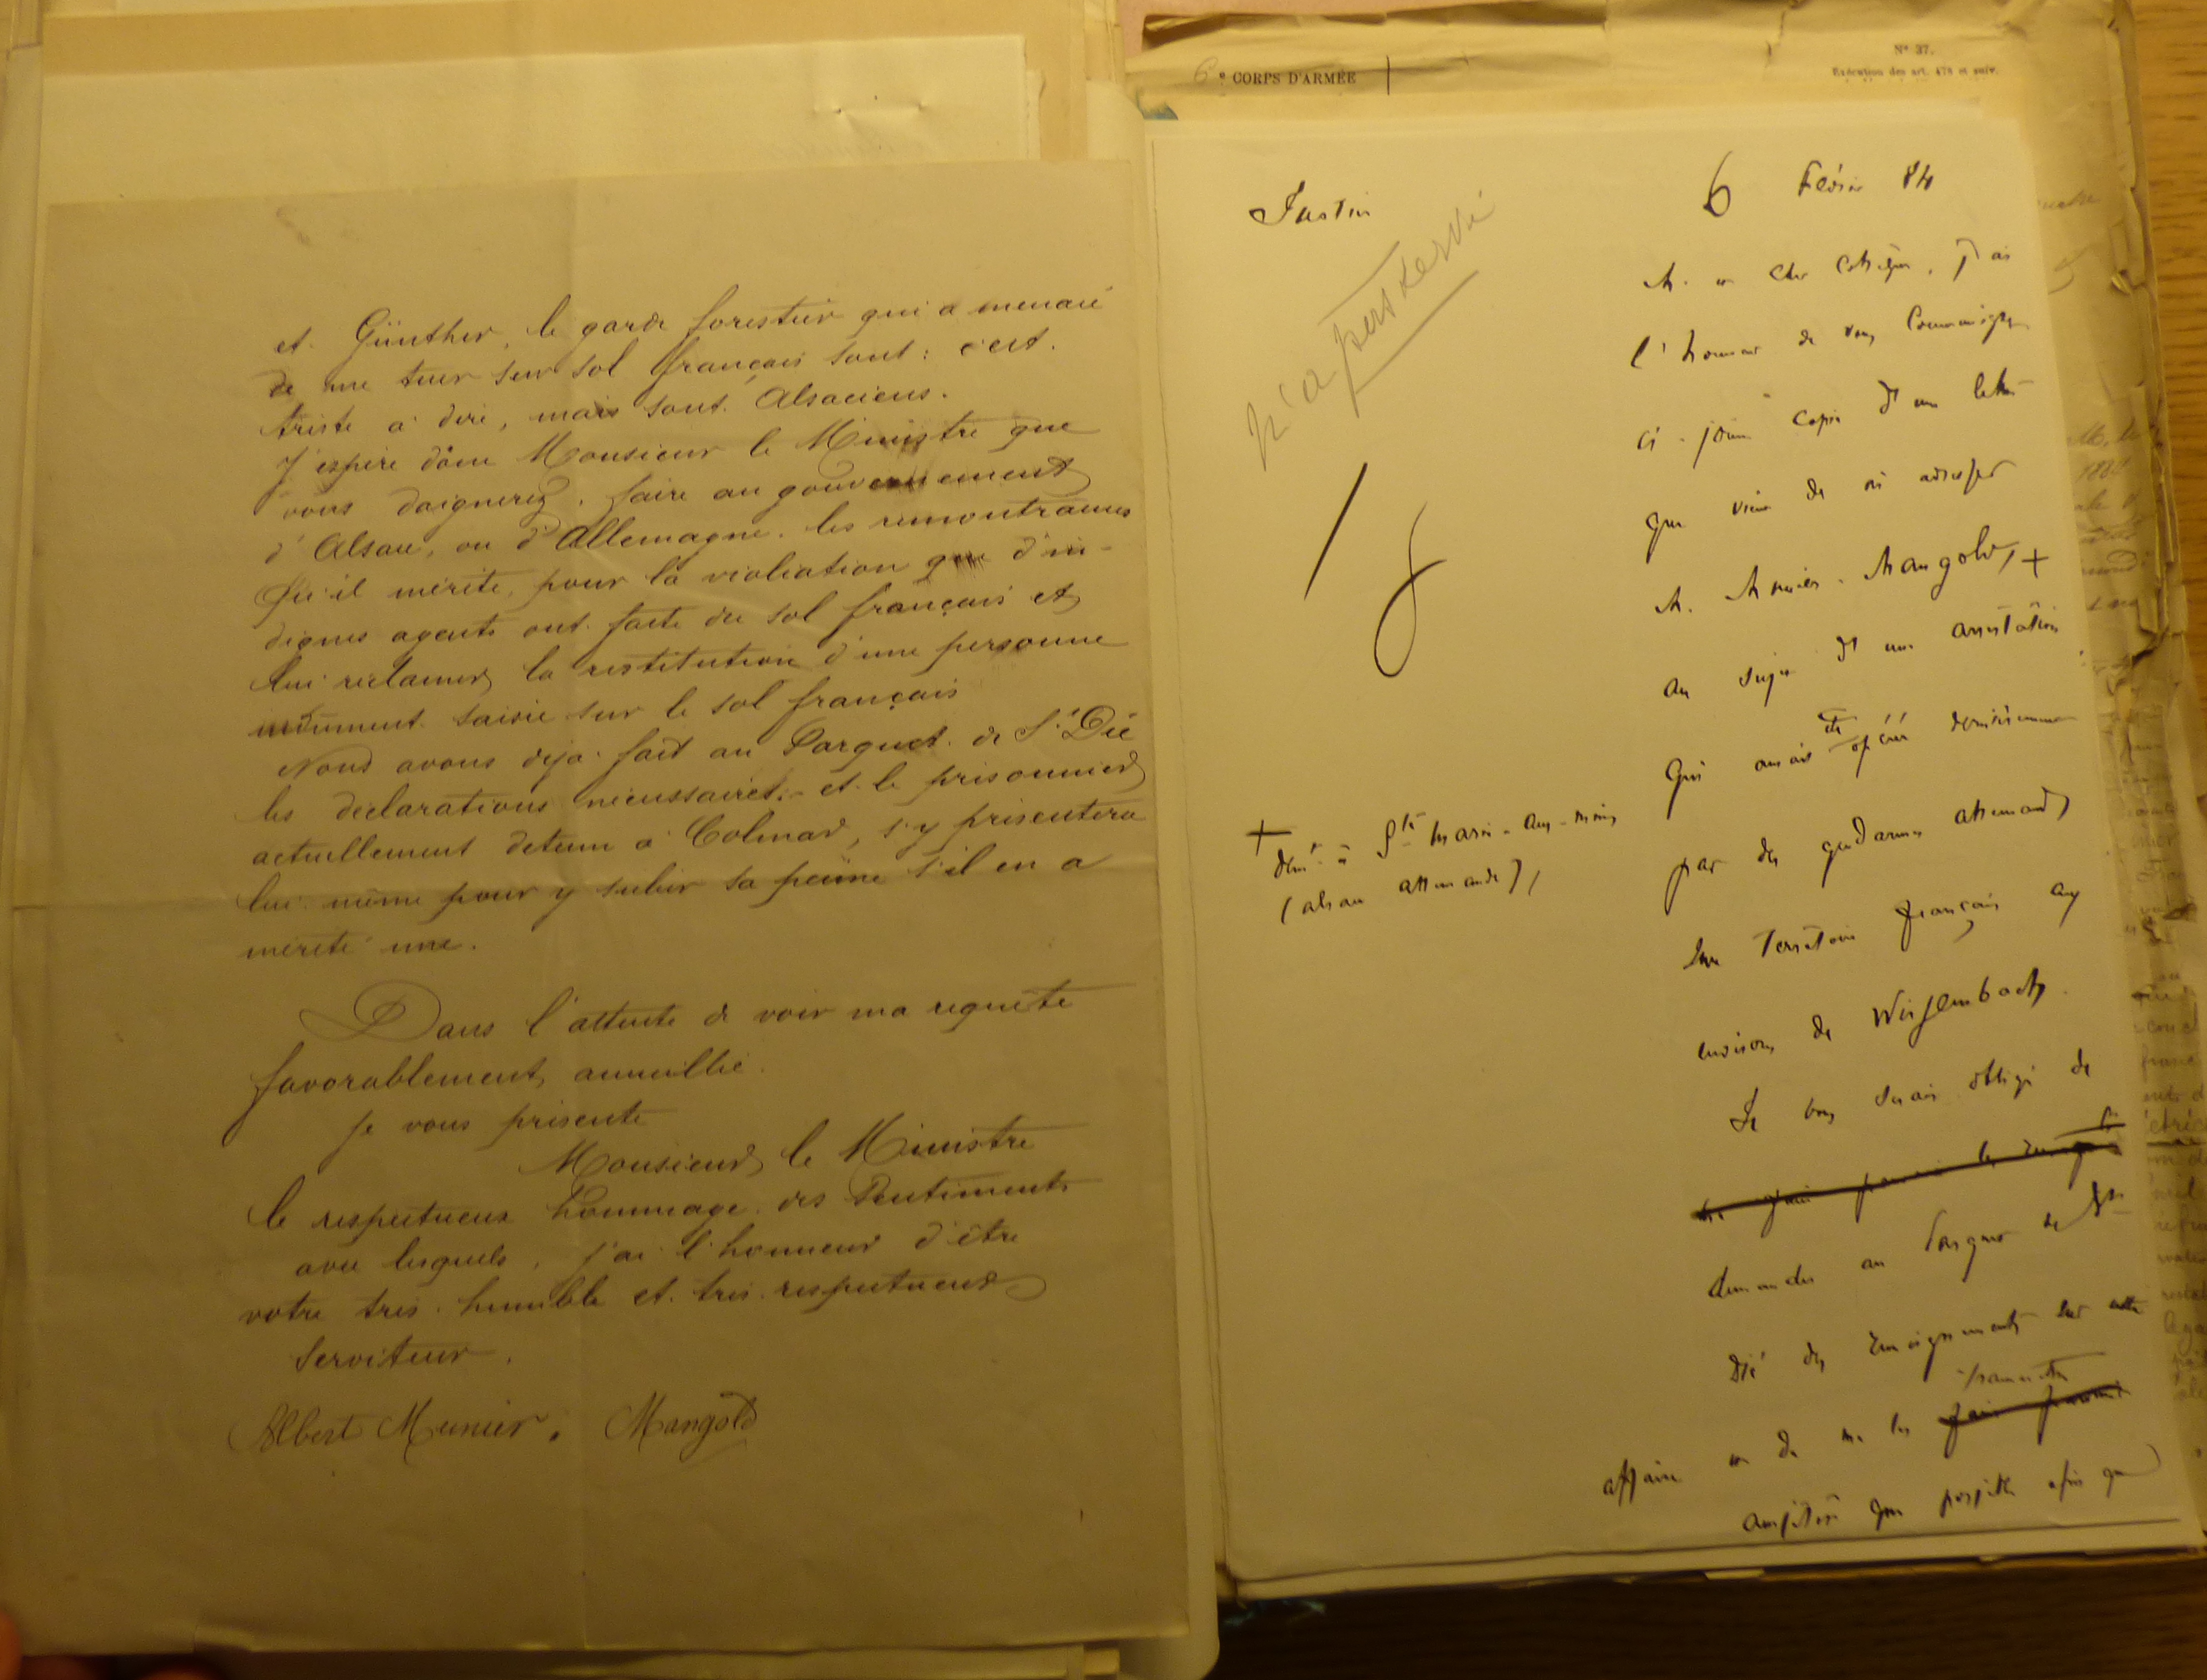 et Günther, le garde forestier qui a menacé
de me tuer sur sol français sont : c'est
triste à dire, mais sont Alsaciens.
J'espère donc Monsieur le Ministre que
vous daignerez, faire au gouvernement
d'Alsace, ou d'Allemagne, les remontrances
qu'il mérite, pour la violation que d'in-
dignes agents ont faite du sol français et
lui réclamer la restitution d'une personne
indûment saisie sur le sol français
Nous avons déjà fait au Parquet de St Dié
les déclarations nécessaires, et le prisonnier
actuellement détenu à Colmar, s'y présentera
lui même pour y subir sa peine s'il en a
mérité une.
Dans l'attente de voir ma requête
favorablement accueillie.
je vous présente
Monsieur le Ministre
le respectueux hommage des Sentiments
avec lesquels, j'ai l'honneur d'être
votre très humble et très respectueux
Serviteur,
Albert Munier. Mangold
6e CORPS D'ARMÉE
N° 37.
Exécution des art. 478 et suiv.
Justice
6 Février 84
n'a pas
M. et cher Collègue, j'ai
l'honneur de vous communiquer
ci-joint copie d'une lettre
que vient de m'adresser
M. Munier-Mangold, +
au sujet d'une arrestation
qui aurait été opérée dernièrement
par des gendarmes allemands
sur territoire français aux
environs de Wissembach.
+ demt à Ste Marie-aux-mines
(alsace allemande),
Je vous serais obligé de
demander au Parquet de St
Dié des renseignements sur cette
affaire et de me les transmettre
aussitôt que possible afin que